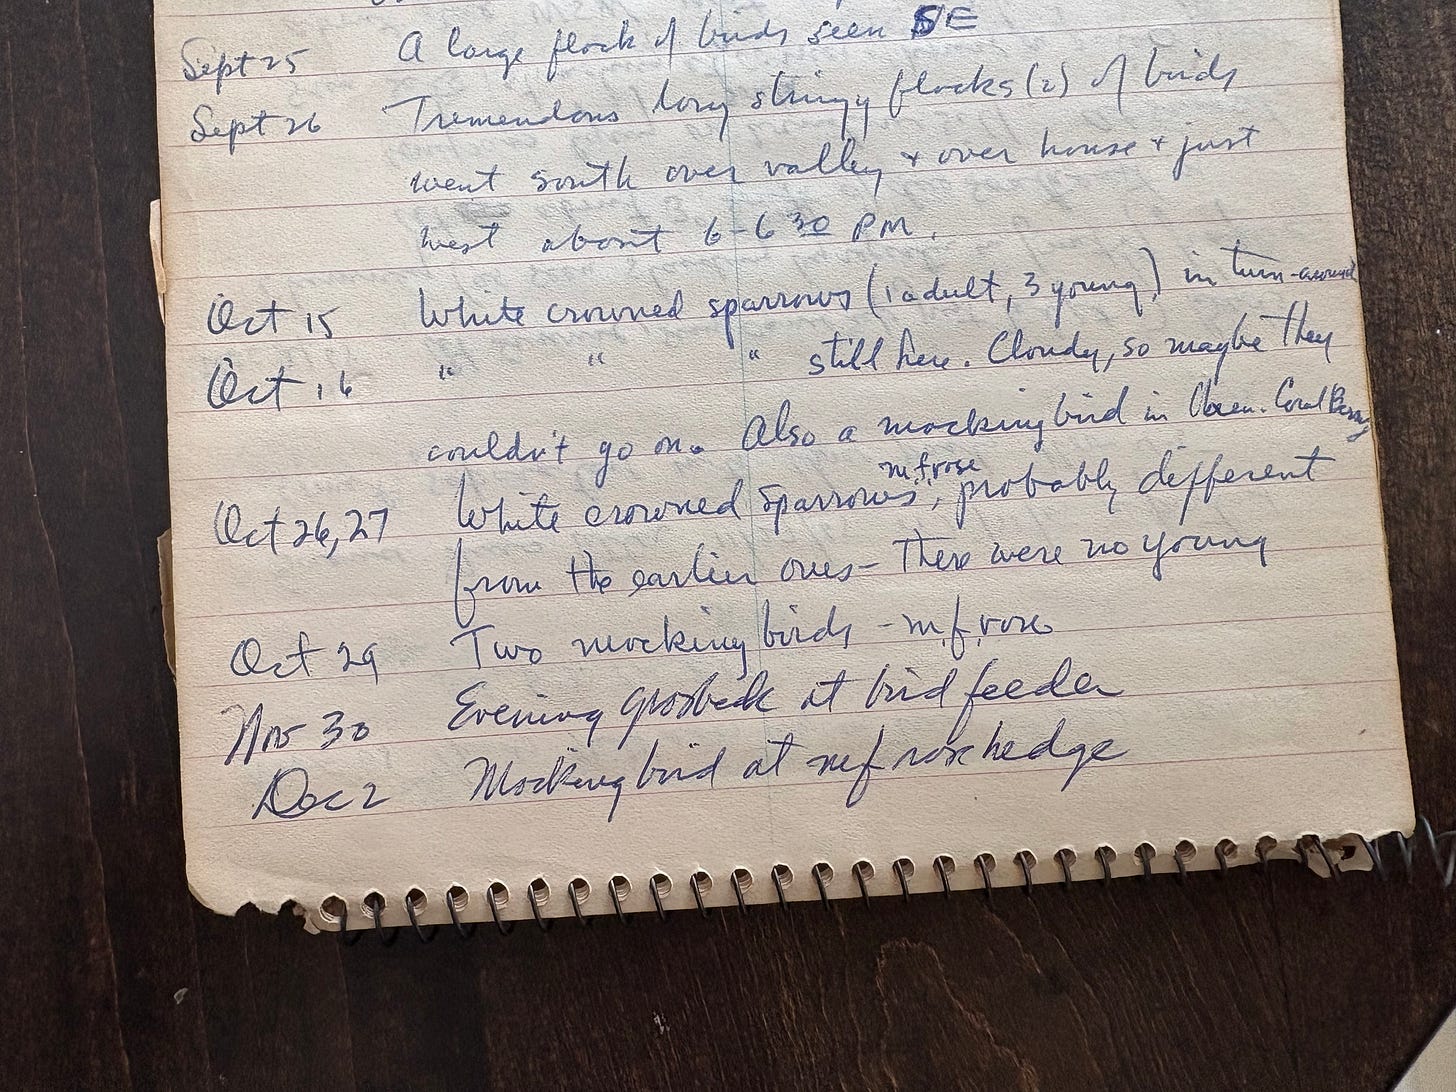 Sept 25 A large flock of birds seen SE
Sept 26 Tremendous long stringy flocks (2) of birds
went south over valley + over house + just
west about 6-6 30 PM.
Oct 15 White crowned sparrows (1 adult, 3 young) in turn-around
Oct 16 " " " still here. Cloudy, so maybe they
couldn't go on. Also a mockingbird in Coral Berry
m.f. rose
Oct 26, 27 White crowned sparrows, probably different
from the earlier ones - There were no young
Oct 29 Two mocking birds - m.f. rose
Nov 30 Evening grosbeak at bird feeder
Dec 2 Mockingbird at mf rose hedge